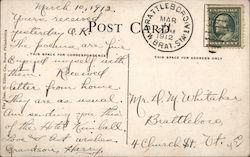 March 10, 1912.
Yours received
yesterday O.K.
The pictures are fine
Enjoyed myself with
them. Received
letter from home
They are as usual.
Am sending you this
of the Hotel Kimball
Love and best wishes
Grandson, Harry.
POST CARD
THIS SPACE FOR CORRESPONDENCE
THIS SPACE FOR ADDRESS ONLY
BRATTLEBORO, VT.
MAR
1912
Mr. D. M. Whitaker
Brattleboro,
4 Church St. Vt.